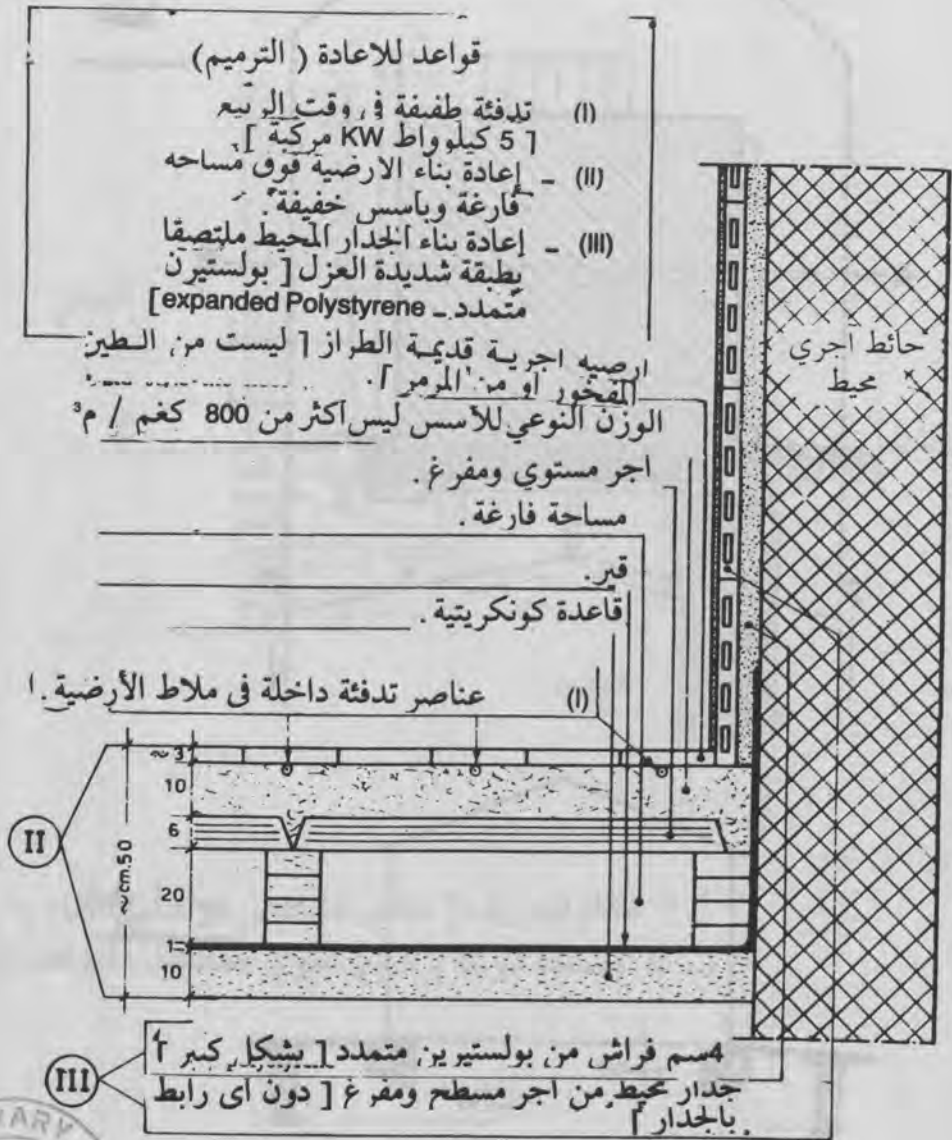 قواعد للاعادة ( الترميم )
(I) تدفئة طفيفة في وقت الربيع
[ 5 كيلو واط KW مركبة ]
(II) - إعادة بناء الارضية فوق مساحه
فارغة وباسس خفيفة .
(III) - إعادة بناء الجدار المحيط ملتصقا
بطبقة شديدة العزل [ بولستيرن
متمدد - expanded Polystyrene ]
ارضيه اجرية قديمة الطراز [ ليست من الطين
المفخور او من المرمر ] .
الوزن النوعي للأسس ليس اكثر من 800 كغم / م³
اجر مستوي ومفرغ .
مساحة فارغة .
قير .
قاعدة كونكريتية .
(I) عناصر تدفئة داخلة في ملاط الأرضية .
حائط آجري
محيط
~ 3
10
6
20
1
10
~ cm.50
II
III
4سم فراش من بولستيرين متمدد [ بشكل كبير ]
جدار محيط من اجر مسطح ومفرغ [ دون اى رابط
بالجدار ]
RARY